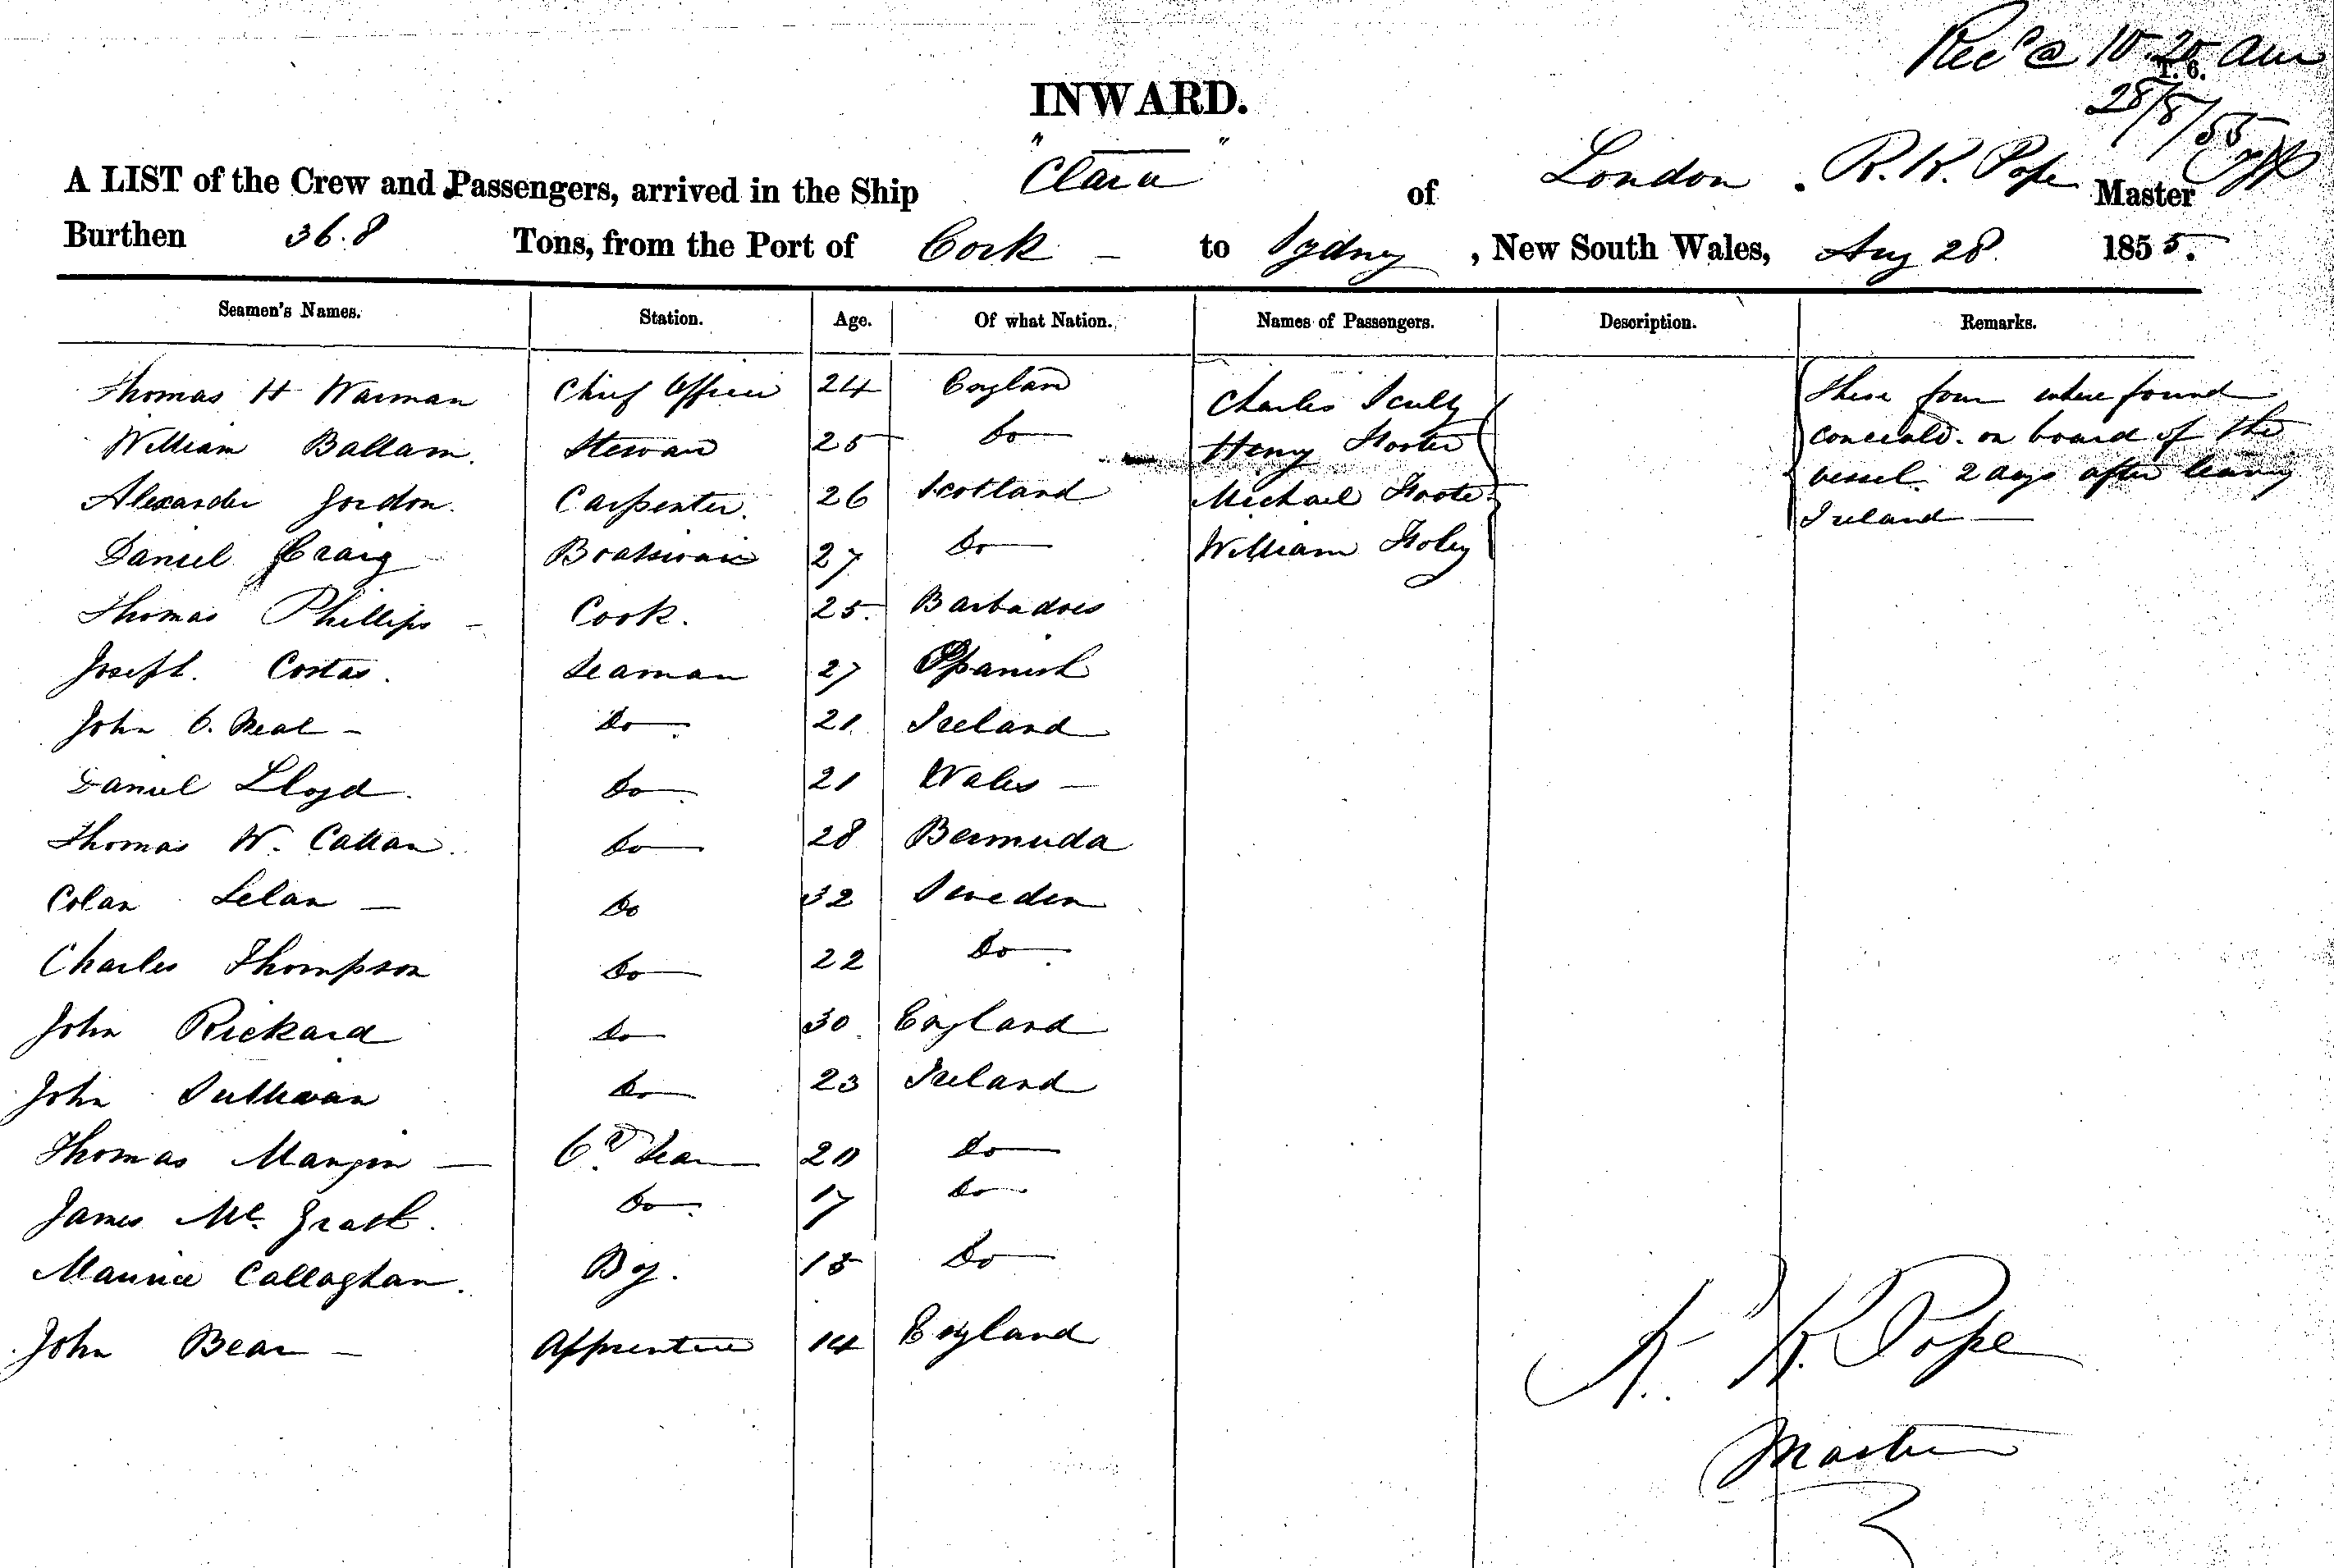 Recd @ 10.20 am
T. 6.
28/8/55
INWARD.
A LIST of the Crew and Passengers, arrived in the Ship "Clara" of London . R. K. Pope Master
Burthen 368 Tons, from the Port of Cork - to Sydney , New South Wales, Aug 28 1855.
Seamen's Names. Station. Age. Of what Nation. Names of Passengers. Description. Remarks.
Thomas H Warman Chief Officer 24 England Charles Scully These four where found
William Ballam. Steward 25 Do Henry conceald on board of the
Alexander Gordon. Carpenter. 26 Scotland Michael vessel 2 days after leaving
Daniel Craig Boatswain 27 Do William Foley Ireland
Thomas Phillips - Cook. 25. Barbadoes
Joseph. Costas. Seaman 27 Spanish
John O. Neal - Do 21. Ireland
Daniel Lloyd. Do 21 Wales -
Thomas W. Do 28 Bermuda
Colan Lelan - Do 32 Sweden
Charles Thompson Do 22 Do
John Rickard Do 30. England
John Sullivan Do 23 Ireland
Thomas Mangin - Od. Sea 20 Do
James Mc. Grath. Do 17 Do
Maurice Callaghan. Boy. 15 Do
John Bean - Apprentice 14 England
R. K. Pope
Master